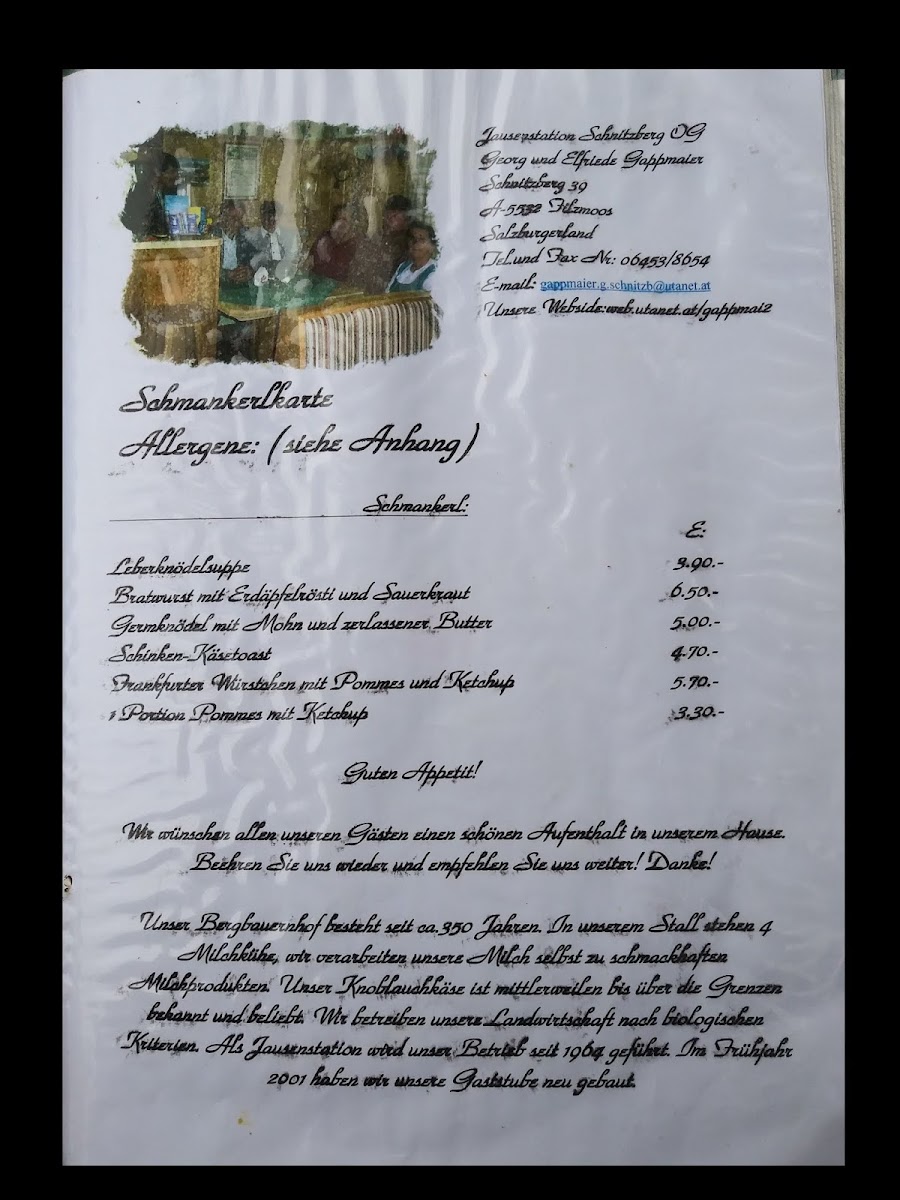 Jausenstation Schnitzberg OG
Georg und Elfriede Gappmaier
Schnitzberg 39
A-5532 Filzmoos
Salzburgerland
Tel.und Fax Nr.: 06453/8654
E-mail: gappmaier.g.schnitzb@utanet.at
Unsere Webside:web.utanet.at/gappmai2
Schmankerlkarte
Allergene: (siehe Anhang)
Schmankerl:
E:
Leberknödelsuppe 3.90.-
Bratwurst mit Erdäpfelrösti und Sauerkraut 6.50.-
Germknödel mit Mohn und zerlassener Butter 5.00.-
Schinken-Käsetoast 4.70.-
Frankfurter Würstchen mit Pommes und Ketchup 5.70.-
1 Portion Pommes mit Ketchup 3.30.-
Guten Appetit!
Wir wünschen allen unseren Gästen einen schönen Aufenthalt in unserem Hause.
Beehren Sie uns wieder und empfehlen Sie uns weiter! Danke!
Unser Bergbauernhof besteht seit ca.350 Jahren. In unserem Stall stehen 4
Milchkühe, wir verarbeiten unsere Milch selbst zu schmackhaften
Milchprodukten. Unser Knoblauchkäse ist mittlerweilen bis über die Grenzen
bekannt und beliebt. Wir betreiben unsere Landwirtschaft nach biologischen
Kriterien. Als Jausenstation wird unser Betrieb seit 1964 geführt. Im Frühjahr
2001 haben wir unsere Gaststube neu gebaut.